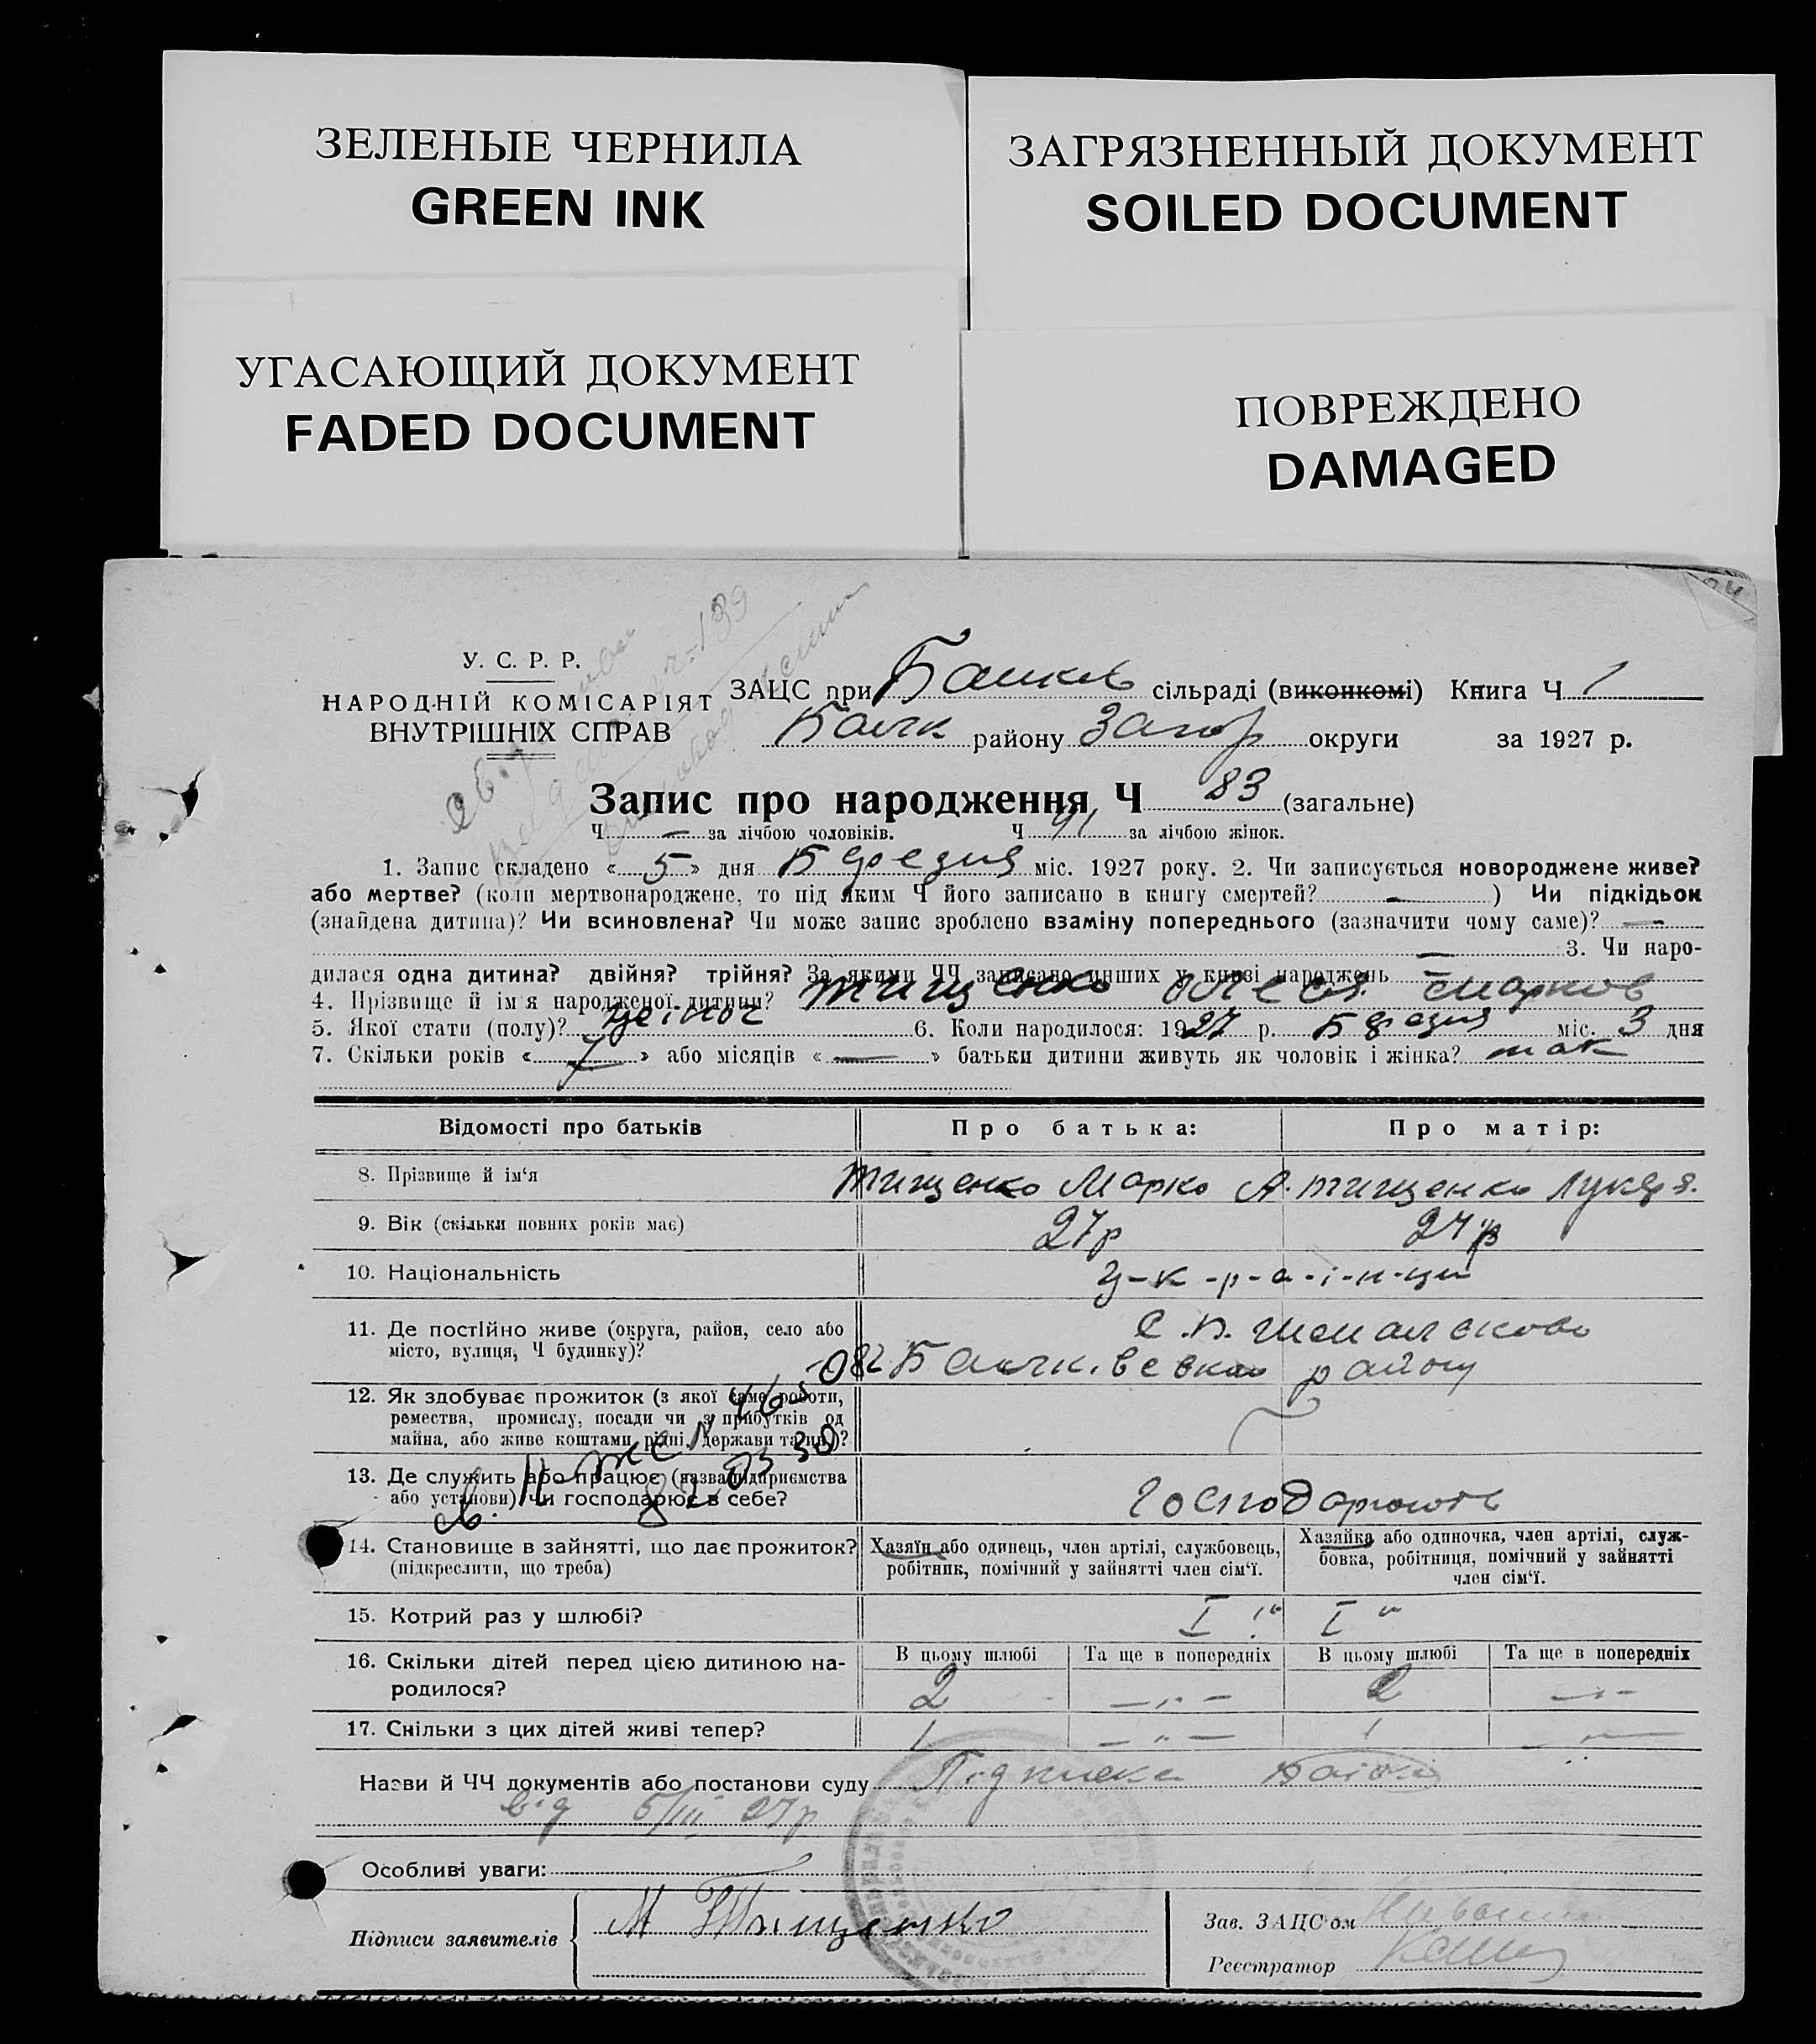 ЗЕЛЕНЫЕ ЧЕРНИЛА
GREEN INK
ЗАГРЯЗНЕННЫЙ ДОКУМЕНТ
SOILED DOCUMENT
УГАСАЮЩИЙ ДОКУМЕНТ
FADED DOCUMENT
ПОВРЕЖДЕНО
DAMAGED
У. С. Р. Р.
НАРОДНІЙ КОМІСАРІЯТ
ВНУТРІШНІХ СПРАВ
ЗАЦС при сільраді (виконкомі) Книга Ч 1
району Запор округи за 1927 р.
Запис про народження Ч 83 (загальне)
Ч — за лічбою чоловіків. Ч 41 за лічбою жінок.
1. Запис складено « 5 » дня Березня міс. 1927 року. 2. Чи записується новороджене живе?
або мертве? (коли мертвонароджене, то під яким Ч його записано в книгу смертей? — ) Чи підкідьок
(знайдена дитина)? Чи всиновлена? Чи може запис зроблено взаміну попереднього (зазначити чому саме)? —
— 3. Чи наро-
дилася одна дитина? двійня? трійня? За якими ЧЧ записано инших у книзі народжень —
4. Прізвище й ім'я народженої дитини? Тищенко Олеся Марков
5. Якої стати (полу)? жіноч 6. Коли народилося: 1927 р. Березня міс. 3 дня
7. Скільки років « 7 » або місяців « — » батьки дитини живуть як чоловік і жінка? так
Відомості про батьків
Про батька:
Про матір:
8. Прізвище й ім'я
Тищенко Марко А.
Тищенко Лукер я.
9. Вік (скільки повних років має)
27р
27р
10. Національність
у-к-р-а-і-н-ци
11. Де постійно живе (округа, район, село або
місто, вулиця, Ч будинку)?
району
12. Як здобуває прожиток (з якої саме роботи,
ремества, промислу, посади чи з прибутків од
майна, або живе коштами рідні, держави та ин.)?
13. Де служить або працює (назва підприємства
або установи) Чи господарює в себе?
Господарюють
14. Становище в зайнятті, що дає прожиток?
(підкреслити, що треба)
Хазяїн або одинець, член артілі, службовець,
робітник, помічний у зайнятті член сім'ї.
Хазяйка або одиночка, член артілі, служ-
бовка, робітниця, помічний у зайнятті
член сім'ї.
15. Котрий раз у шлюбі?
I
I
16. Скільки дітей перед цією дитиною на-
родилося?
В цьому шлюбі
Та ще в попередніх
В цьому шлюбі
Та ще в попередніх
2 — „ — 2 — „ —
17. Скільки з цих дітей живі тепер?
1 — „ — 1 — „ —
Назви й ЧЧ документів або постанови суду Підписка
від 5/III 27р
Особливі уваги:
Підписи заявителів
М Тищенко
Зав. ЗАЦС'ом
Реєстратор